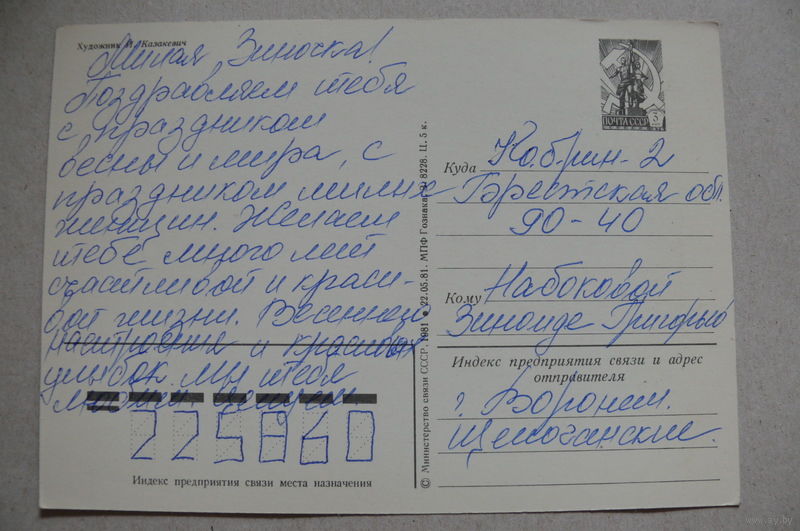 Художник И. Казакевич
Милая Зиночка!
Поздравляем тебя
с праздником
весны и мира, с
праздником милых
женщин. Желаем
тебе много лет
счастливой и краси-
вой жизни. Весеннего
настроения и красивых
улыбок. Мы тебя
любим
225860
Индекс предприятия связи места назначения
© Министерство связи СССР. 1981 ● 22.05.81. МПФ Гознака. З. 8228. Ц. 5 к.
ПОЧТА СССР 3
Куда Кобрин-2
Брестская обл.
90-40
Кому Набоковой
Зинаиде Григорьев
Индекс предприятия связи и адрес
отправителя
г. Воронеж.
www.ay.by